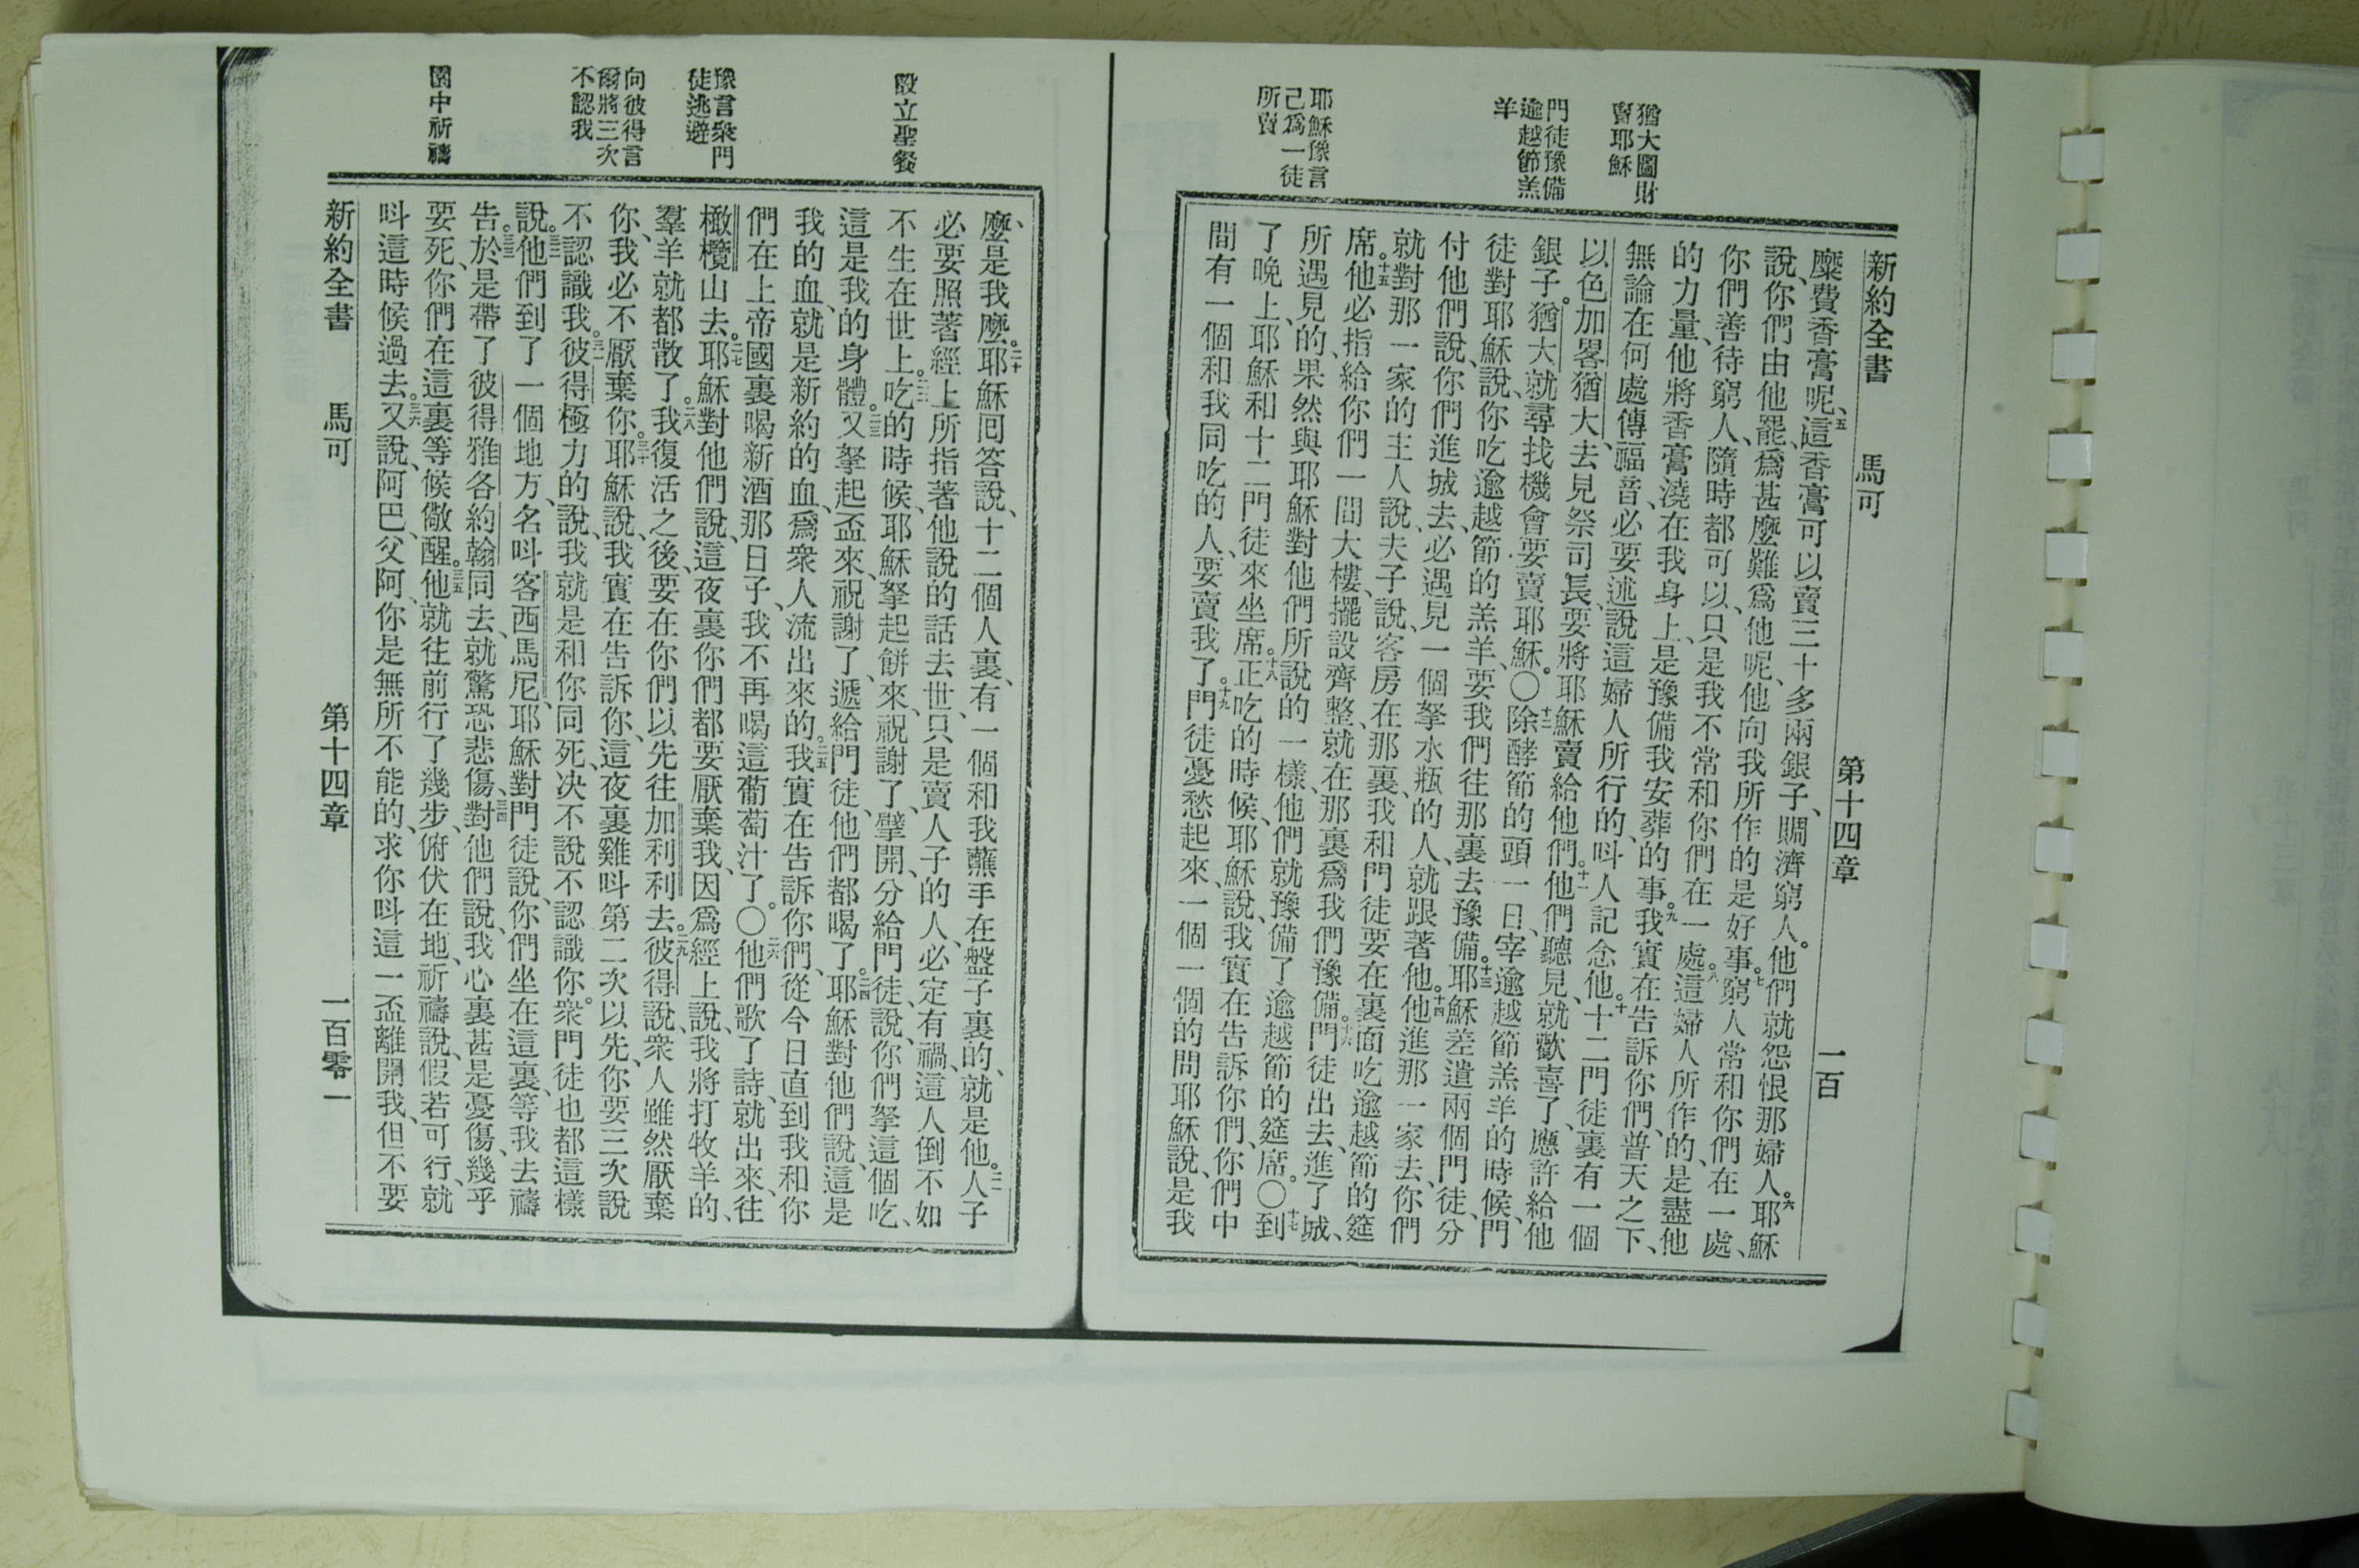 猶大圖財
賣耶穌
門徒豫備
逾越節羔
羊
耶穌豫言
己爲一徒
所賣
新約全書 馬可 第十四章 一百
糜費香膏呢、五這香膏可以賣三十多兩銀子、賙濟窮人。他們就怨恨那婦人。六耶穌
說、你們由他罷、爲甚麼難爲他呢、他向我所作的是好事。七窮人常和你們在一處、
你們善待窮人、隨時都可以、只是我不常和你們在一處。八這婦人所作的、是盡他
的力量、他將香膏澆在我身上、是豫備我安葬的事。九我實在告訴你們、普天之下、
無論在何處傳福音、必要述說這婦人所行的、呌人記念他。十十二門徒裏有一個
以色加畧猶大、去見祭司長、要將耶穌賣給他們。十一他們聽見、就歡喜了、應許給他
銀子。猶大就尋找機會要賣耶穌。〇十二除酵節的頭一日、宰逾越節羔羊的時候、門
徒對耶穌說、你吃逾越節的羔羊、要我們往那裏去豫備。十三耶穌差遣兩個門徒、分
付他們說、你們進城去、必遇見一個拏水瓶的人、就跟著他。十四他進那一家去、你們
就對那一家的主人說、夫子說、客房在那裏、我和門徒要在裏面吃逾越節的筵
席。十五他必指給你們一間大樓、擺設齊整、就在那裏爲我們豫備。十六門徒出去、進了城、
所遇見的、果然與耶穌對他們所說的一樣、他們就豫備了逾越節的筵席。〇十七到
了晚上、耶穌和十二門徒來坐席。十八正吃的時候、耶穌說、我實在告訴你們、你們中
間有一個和我同吃的人、要賣我了。十九門徒憂愁起來、一個一個的問耶穌說、是我
設立聖餐
豫言衆門
徒逃避
向彼得言
爾將三次
不認我
園中祈禱
麼、是我麼。二十耶穌回答說、十二個人裏、有一個和我蘸手在盤子裏的、就是他。二一人子
必要照著經上所指著他說的話去世、只是賣人子的人、必定有禍、這人倒不如
不生在世上。二二吃的時候、耶穌拏起餅來、祝謝了、擘開、分給門徒說、你們拏這個吃、
這是我的身體。二三又拏起盃來、祝謝了、遞給門徒、他們都喝了。二四耶穌對他們說、這是
我的血、就是新約的血、爲衆人流出來的。二五我實在告訴你們、從今日直到我和你
們在上帝國裏喝新酒那日子、我不再喝這葡萄汁了。〇二六他們歌了詩、就出來、往
橄欖山去。二七耶穌對他們說、這夜裏你們都要厭棄我、因爲經上說、我將打牧羊的、
羣羊就都散了。二八我復活之後、要在你們以先往加利利去。二九彼得說、衆人雖然厭棄
你、我必不厭棄你。三十耶穌說、我實在告訴你、這夜裏雞呌第二次以先、你要三次說
不認識我。三一彼得極力的說、我就是和你同死、决不說不認識你。衆門徒也都這樣
說。三二他們到了一個地方、名呌客西馬尼、耶穌對門徒說、你們坐在這裏、等我去禱
告。三三於是帶了彼得雅各約翰同去、就驚恐悲傷、三四對他們說、我心裏甚是憂傷、幾乎
要死、你們在這裏等候儆醒。三五他就往前行了幾步、俯伏在地、祈禱說、假若可行、就
呌這時候過去。三六又說、阿巴、父阿、你是無所不能的、求你呌這一盃離開我、但不要
新約全書 馬可 第十四章 一百零一